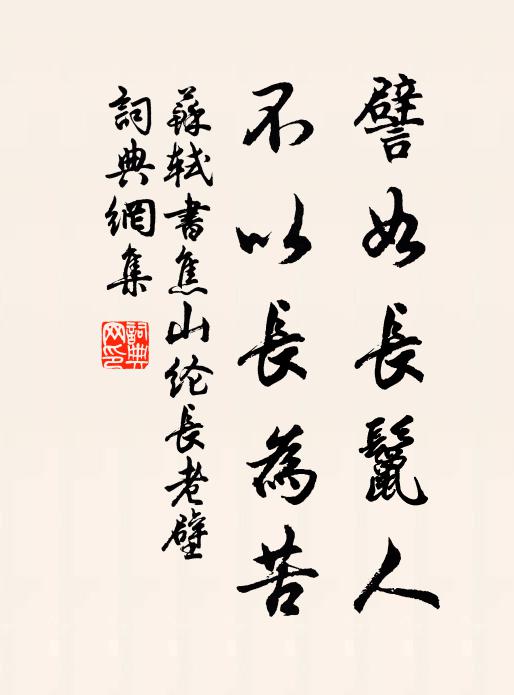 譬如長鬣人
不以長為苦
蘇軾書焦山綸長老壁
詞典網集
詞典網印